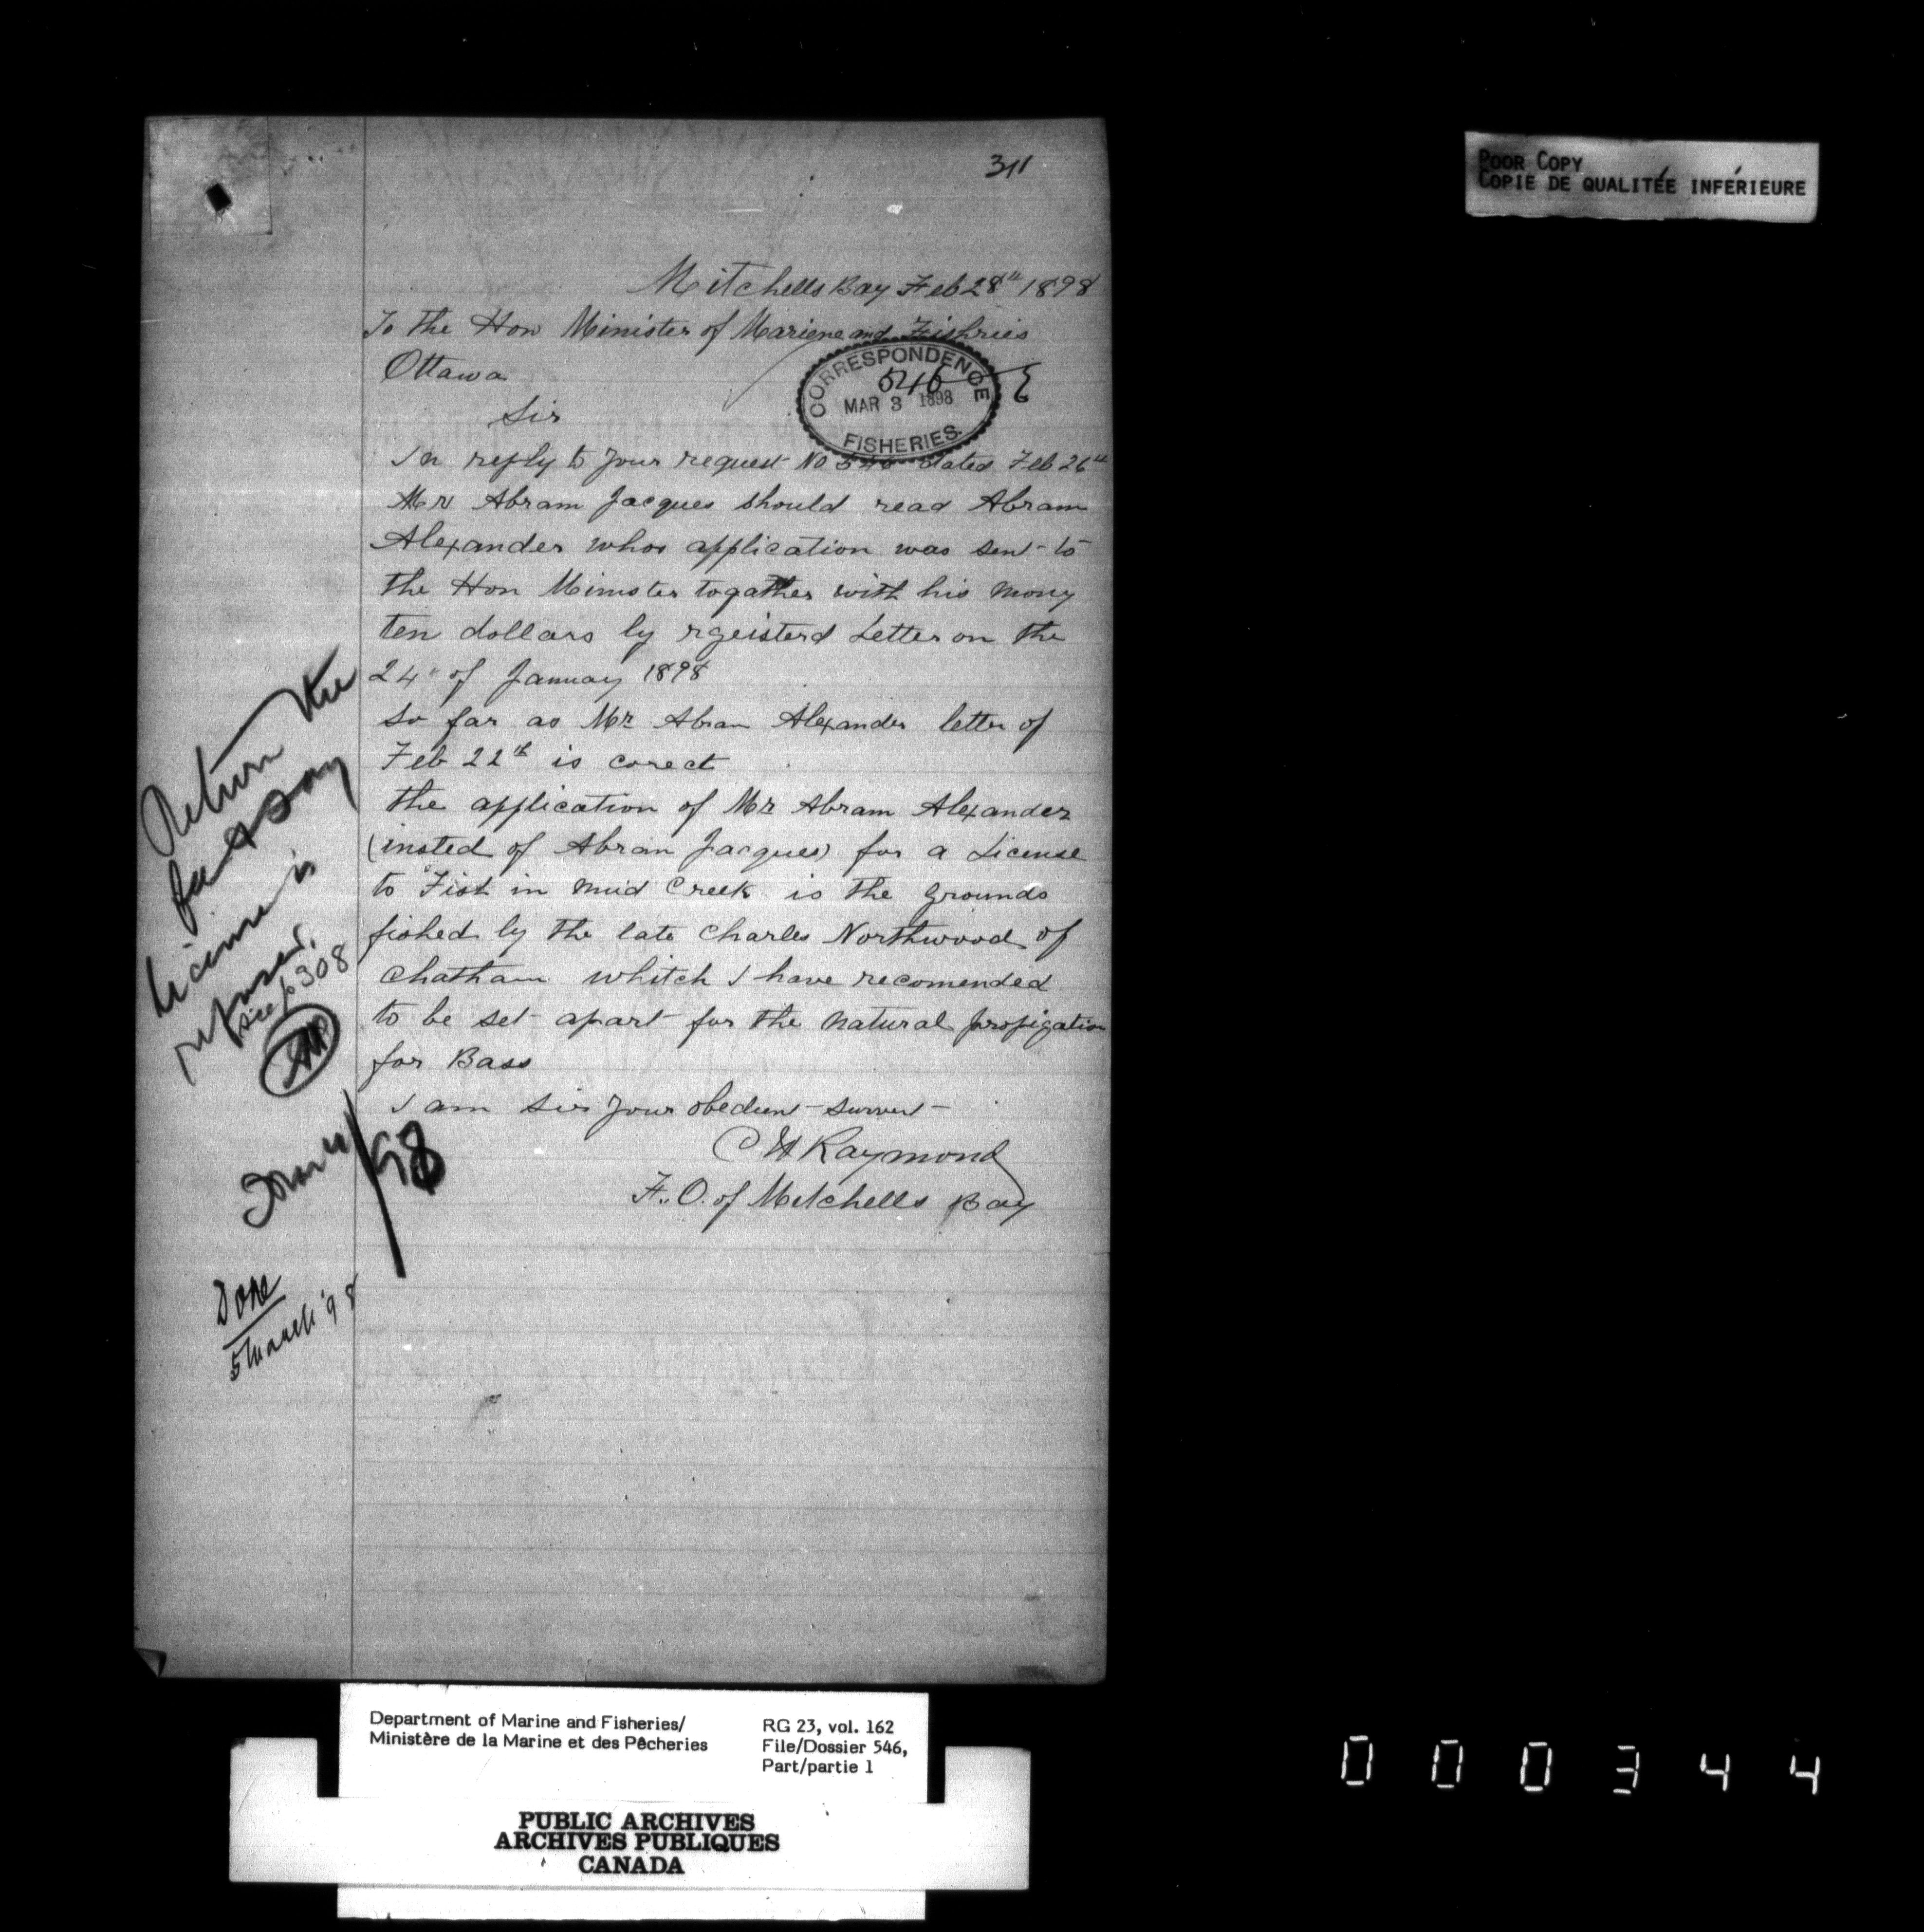 311
POOR COPY
COPIE DE QUALITÉE INFÉRIEURE
Mitchells Bay Feb 28th 1898
To the Hon Minister of Mariene and Fishries
Ottawa
CORRESPONDENCE
546
MAR 3 1898
FISHERIES.
Sir
In reply to your request No 546 dated Feb 26th
Mr Abram Jacques should read Abram
Alexander whos application was sent to
the Hon Minister togather with his mony
ten dollars by rgeisterd Letter on the
24" of January 1898
So far as Mr Abram Alexander letter of
Feb 22th is corect
the application of Mr Abram Alexander
(insted of Abram Jacques) for a License
to Fish in Mud Creek is the grounds
fished by the late Charles Northwood of
Chatham whitch I have recomended
to be set apart for the natural propigation
for Bass
I am Sir your obedient servent
C H Raymond
F. O. of Mitchells Bay
Return the
fee & say
License is
refused.
See p 308
98
Done
5 March '98
Department of Marine and Fisheries/
Ministère de la Marine et des Pêcheries
RG 23, vol. 162
File/Dossier 546,
Part/partie 1
PUBLIC ARCHIVES
ARCHIVES PUBLIQUES
CANADA
000344